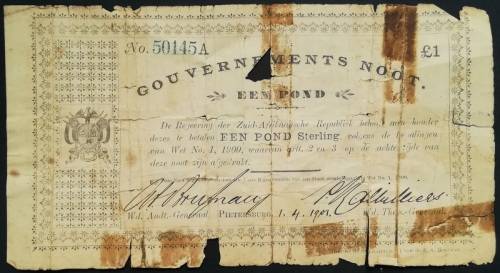 No. 50145A £1
GOUVERNEMENTS NOOT.
EEN POND
De Regeering der Zuid-Afrikaansche Republiek behoudt aan houder
dezes te betalen EEN POND Sterling volgens de bepalingen
van Wet No. 1, 1900, waarvan artt. 2 en 3 op de achterzijde van
deze noot zijn afgedrukt.
Wd. Audt.-Generaal. PIETERSBURG, 1. 4. 1901. Wd. Thes.-Generaal.